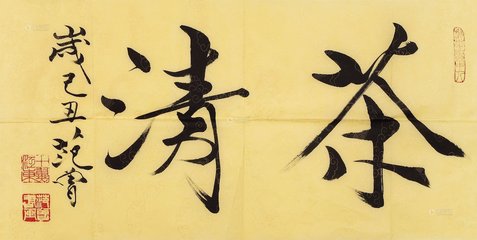 茶清
岁己丑范曾